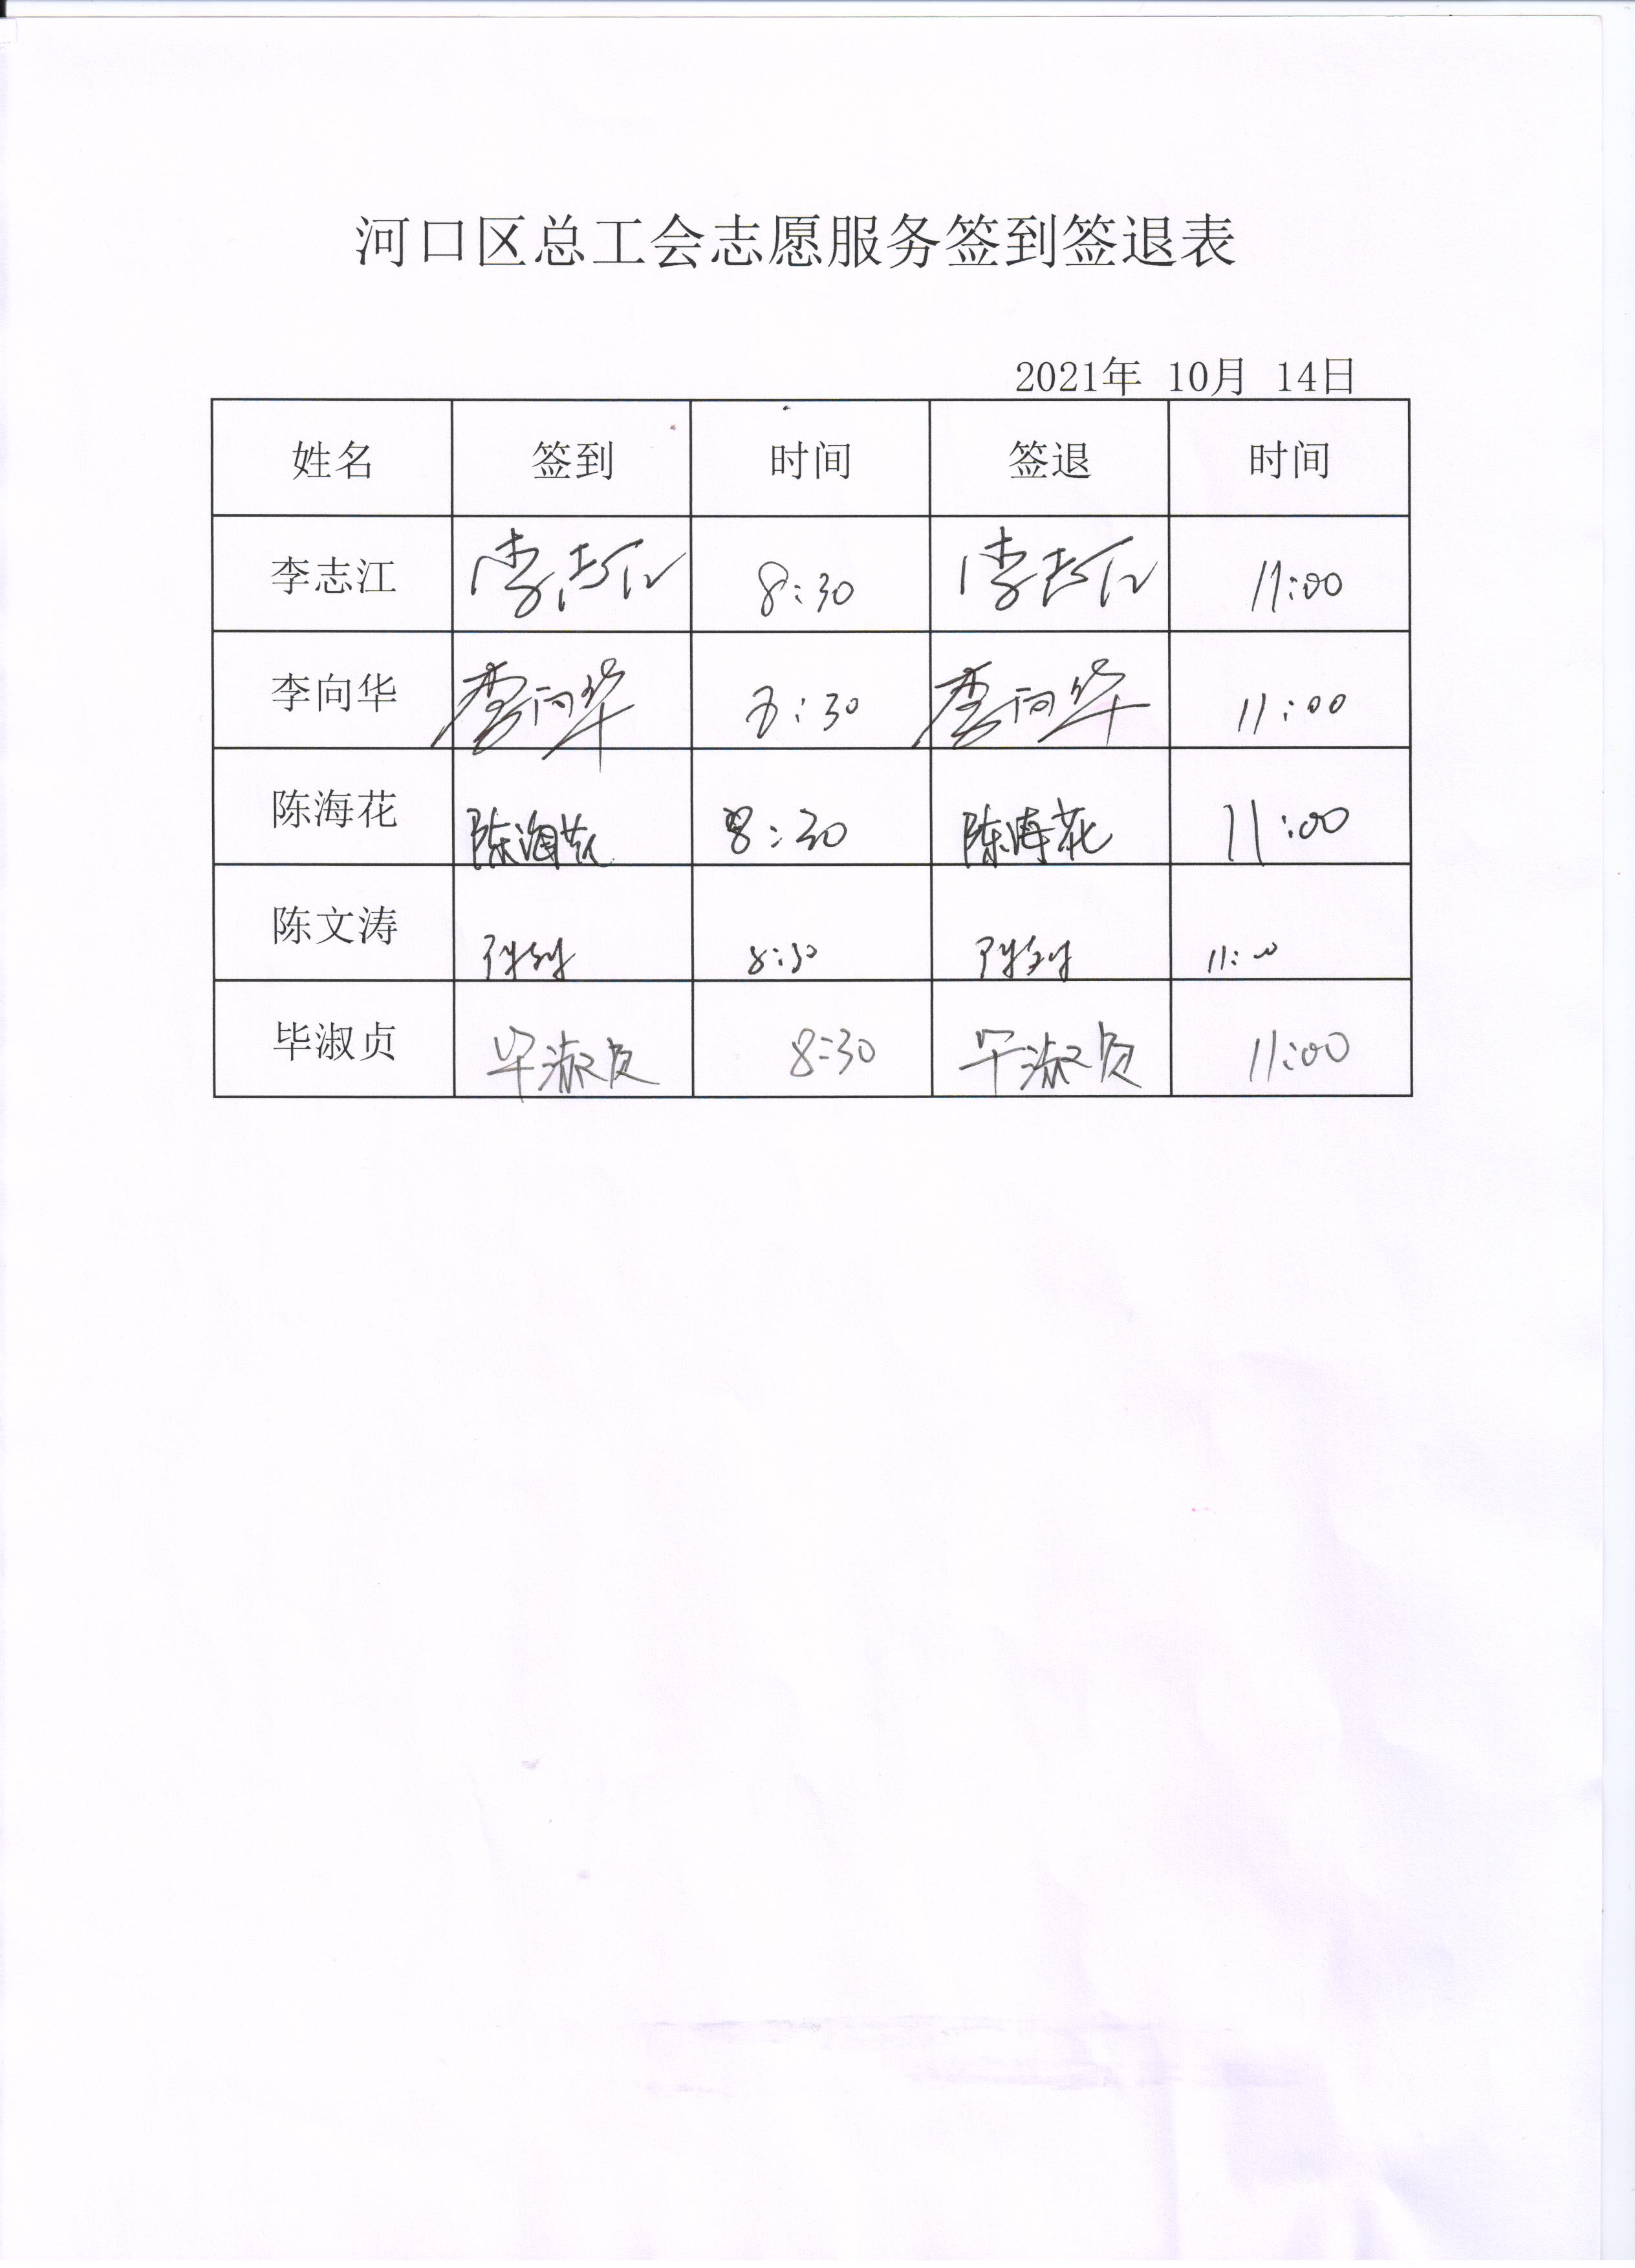 河口区总工会志愿服务签到签退表
2021年 10月 14日
姓名 签到 时间 签退 时间
李志江 李志江 8:30 李志江 11:00
李向华 李向华 8:30 李向华 11:00
陈海花 陈海花 8:30 陈海花 11:00
陈文涛 8:30 11:00
毕淑贞 毕淑贞 8:30 毕淑贞 11:00